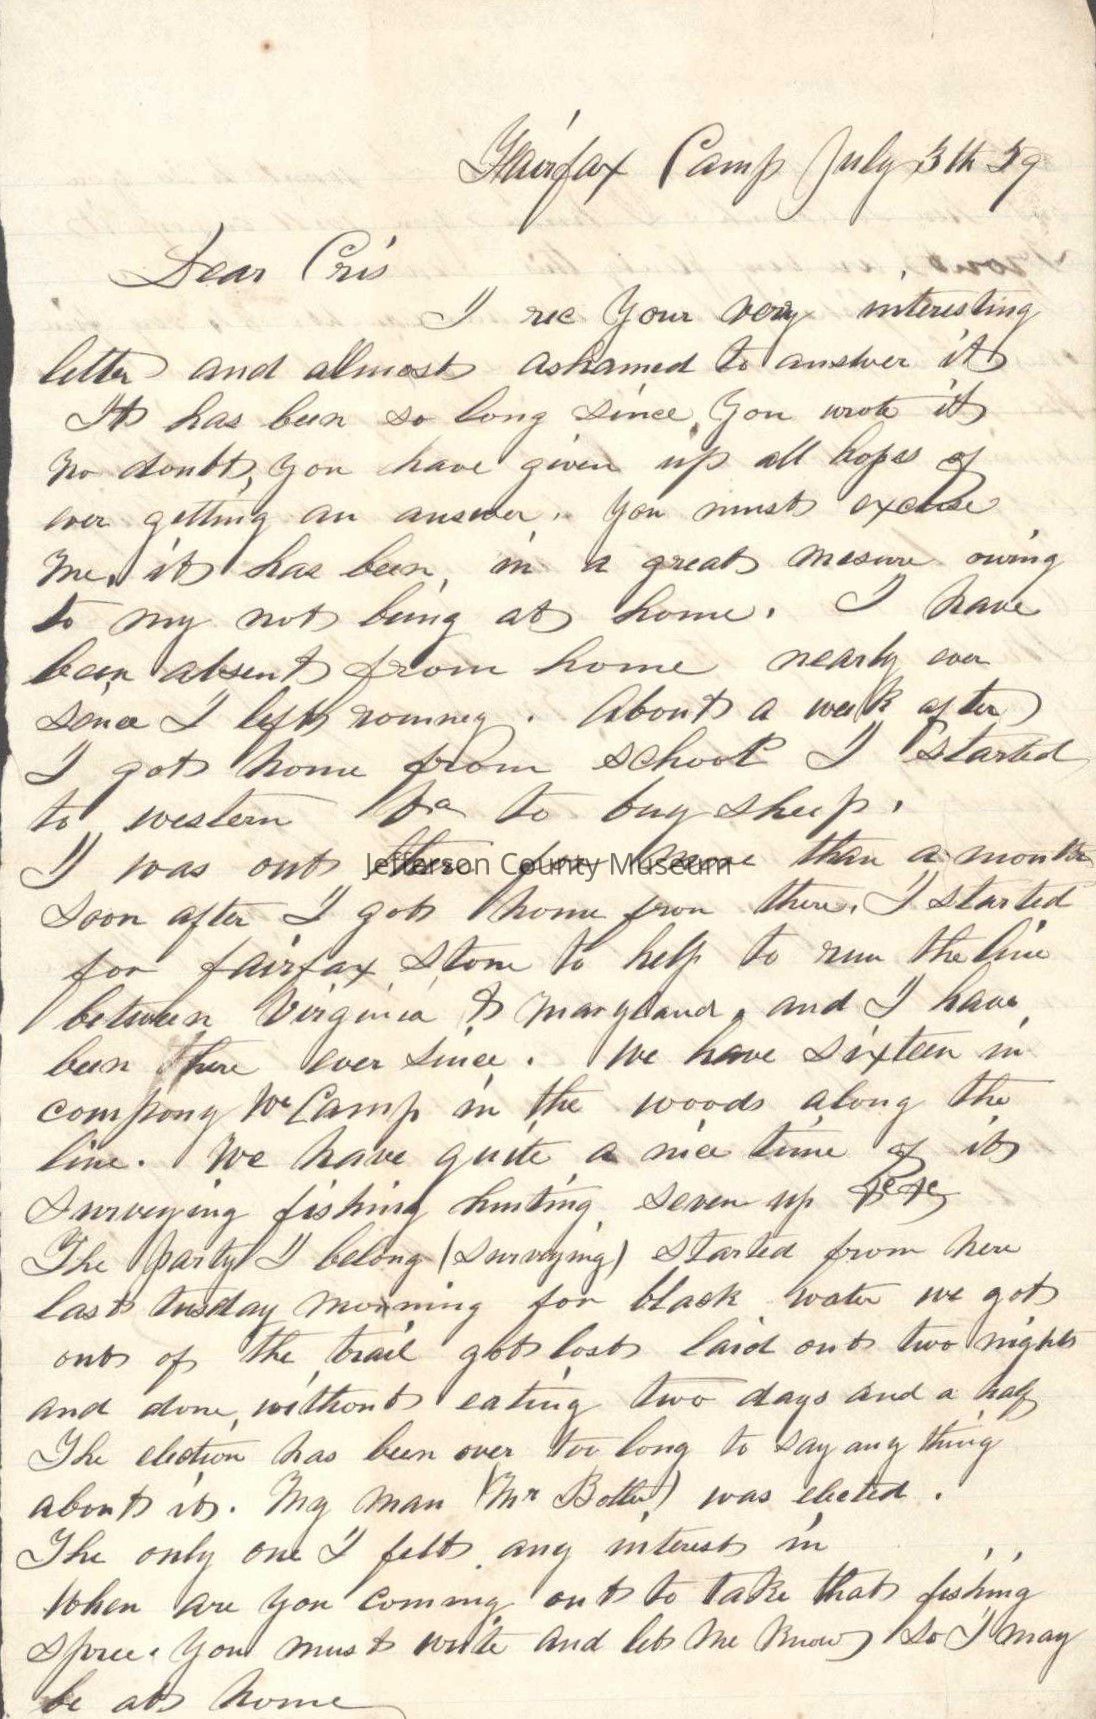 Fairfax Camp July 3th 59
Dear Cris
I rec your very interesting
letter and almost ashamed to answer it
It has been so long since you wrote it
No doubt you have given up all hopes of
ever getting an answer. you must excuse
Me, it has been, in a great mesure owing
to my not being at home. I have
been absent from home nearly ever
sence I left romney. About a week after
I got home from school I started
to western Va to buy sheep.
I was out there for more than a month
Jefferson County Museum
Soon after I got home from there, I started
for fairfax Stone to help to run the line
between Virginia & Maryland, and I have
been there ever since. We have sixteen in
compony We Camp in the woods along the
line. We have quite a nice time of it
surveying fishing hunting seven up &c &c
The party I belong (surveying) started from here
last tusday morning for black water we got
out of the trail got lost laid out two nights
and done without eating two days and a half
The election has been over too long to say any thing
about it. My man (Mr Botler) was elected.
The only one I felt any interest in
When are you coming out to take that fishing
spree. You must write and let me know so I may
be at home